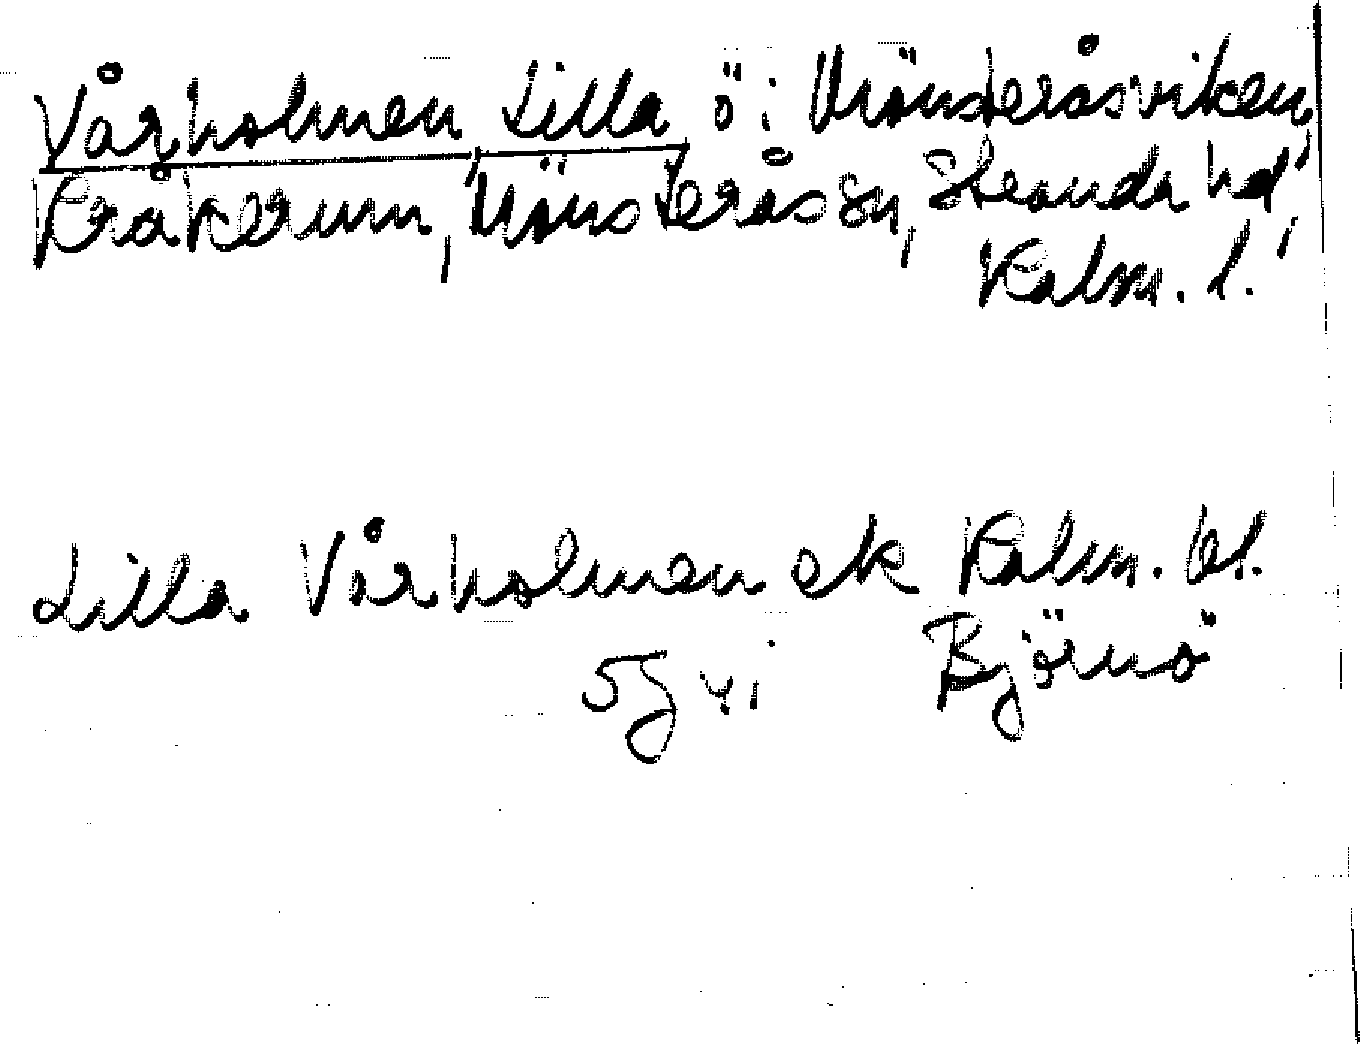 Vårholmen, Lilla ö i Mönsteråsviken,
Kråkerum, Mönsterås sn, Stranda hd,
Kalm. l.
Lilla Vårholmen ek Kalm. bl.
5g vi Björnö